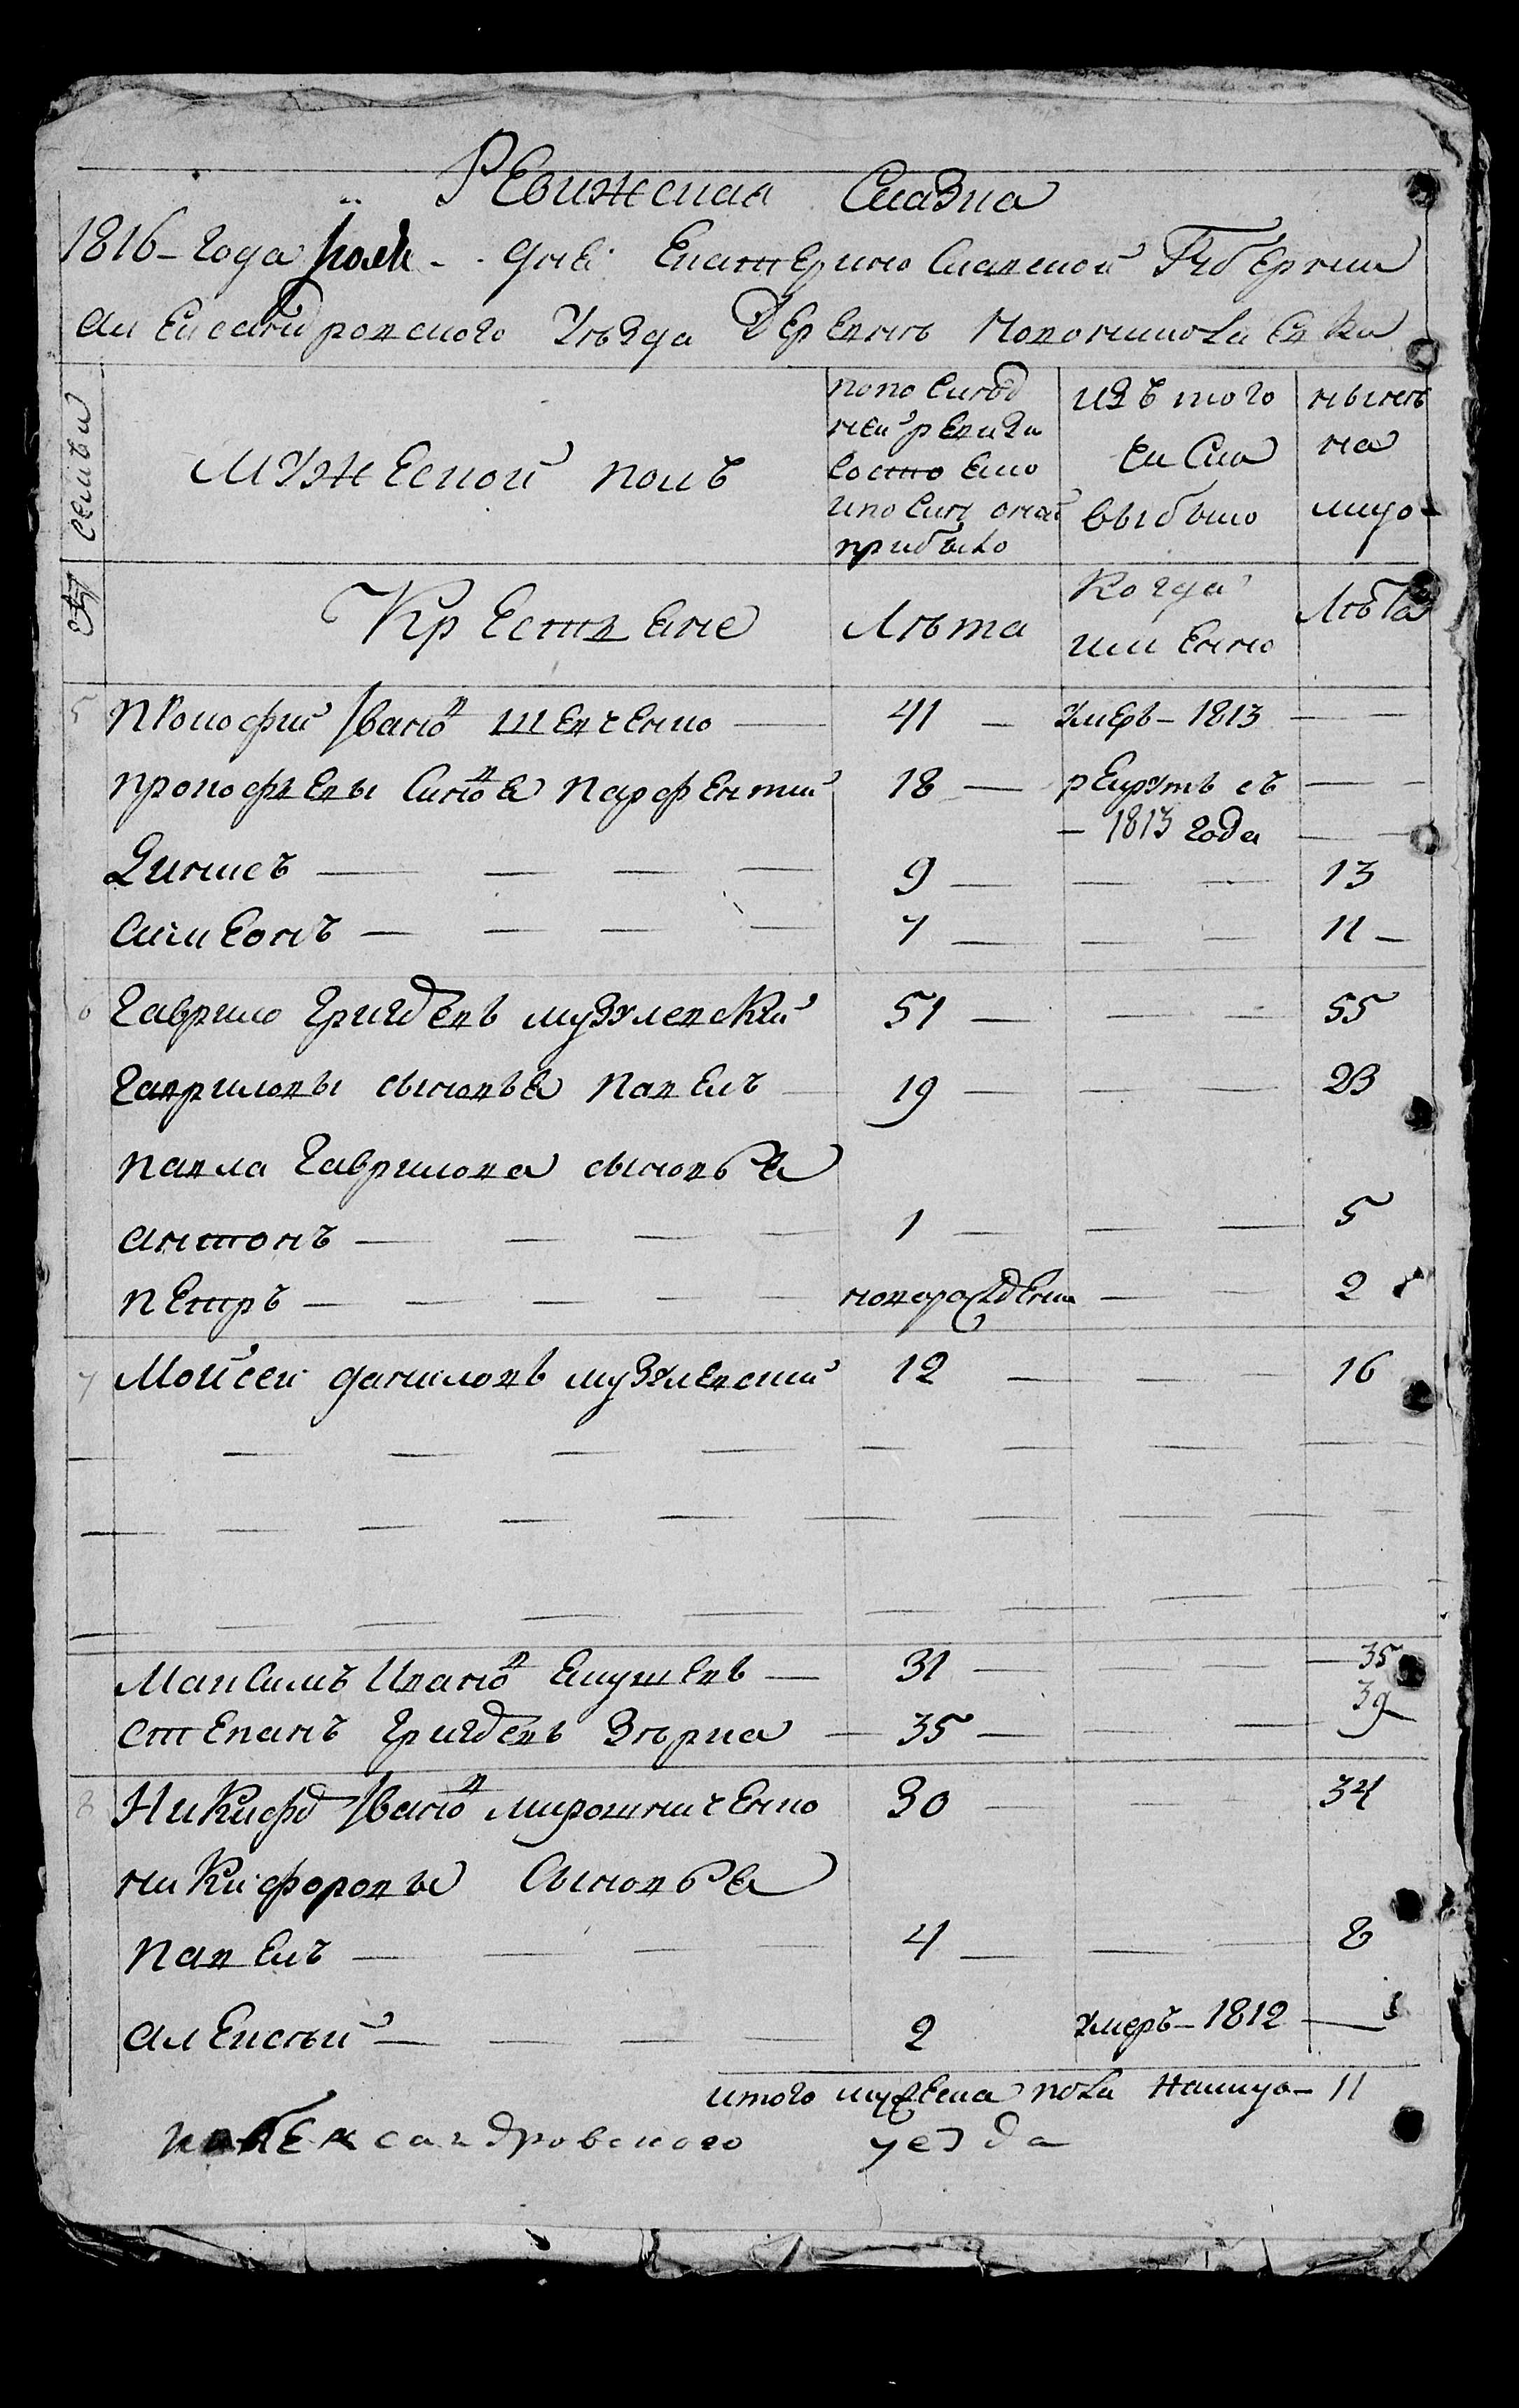 Ревижская Сказка
1816 - Года Июля - - дня Екатеринославской Губернии
Александровского Уѣзда Деревнѣ
семьи
Мужеской полъ
по послѣд
ней ревизи
состояло
и послѣ оной
прибыло
изъ того
числа
выбыло
нынѣ
на
лицо
Крестяне
Лѣта
Когда
именно
Лѣта
5 Прокофий Ивановъ Шевченко — 41 — умеръ - 1813 — —
Прокофѣевы Синовѣя Парфентий 18 — рекрутъ съ — —
— 1813 Года — —
Динисъ — — — — 9 — — — 13
Симеонъ — — — — 7 — — — 11 —
6 Гаврило Григоревъ Музулевский 51 — — — 55
Гавриловы сыновья Павелъ — 19 — — — 23
Павла Гаврилова сыновья
Антонъ — — — — 1 — — — 5
Петръ — — — — новорожденъ — — 2
7 Мойсей Даниловъ Музулевский 12 — — — 16
Максимъ Ивановъ — 31 — — — 35
Степанъ Григоревъ — 35 — — — 39
8 Никифоръ Ивановъ Мирошниченко 30 — — — 34
Никифоровы Сыновья
Павелъ — — — — 4 — — — 8
Алексѣй — — — — 2 умеръ - 1812 —
итого мужеска пола налицо - 11
Александровского уезда